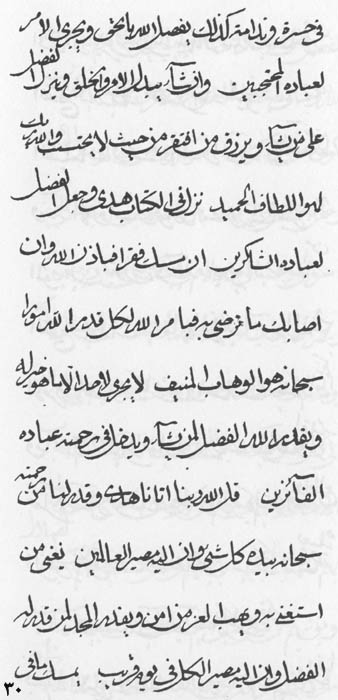 في حسرة وندامة كذلك يفصل الله بالحق ويجري الامر
لعباده المحتجبين وان شآء يبدل الامر والخلق وينزل الفضل
على من يشآء ويرزق من افتقر من حيث لا يحتسب والله
لهو اللطاف الحميد نزل في الكتاب هدى وجعل الفضل
لعباده الشاكرين ان مسك فقر فباذن الله وان
اصابك ما ترضى به فبامر الله لكل قدر الله امورا
سبحانه هو الوهاب المنيف لا يجري لاحد الا ما هو خير له
ويقدر الله الفضل لمن يشآء ويدخل في رحمته عباده
الفآئزين قل الله ربنا اتانا هدى وقدر لنا من رحمته
سبحانه بيده كل شئ وان اليه مصير العالمين يغني من
استغنى به ويهب العز من امن ويقدر المجد لمن قدر له
الفضل وان اليه مصير الكل في يوم قريب يمسك ما في
٣٠